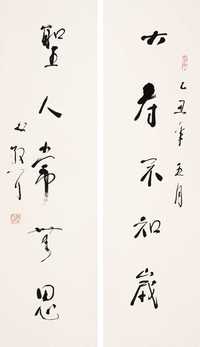 大寿不知歲
乙丑年五月
聖人常無思
散耳